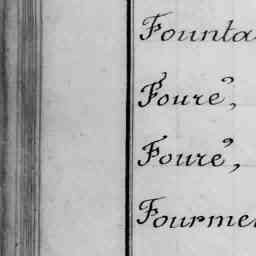 Founta
Fouré,
Fouré,
Fourme